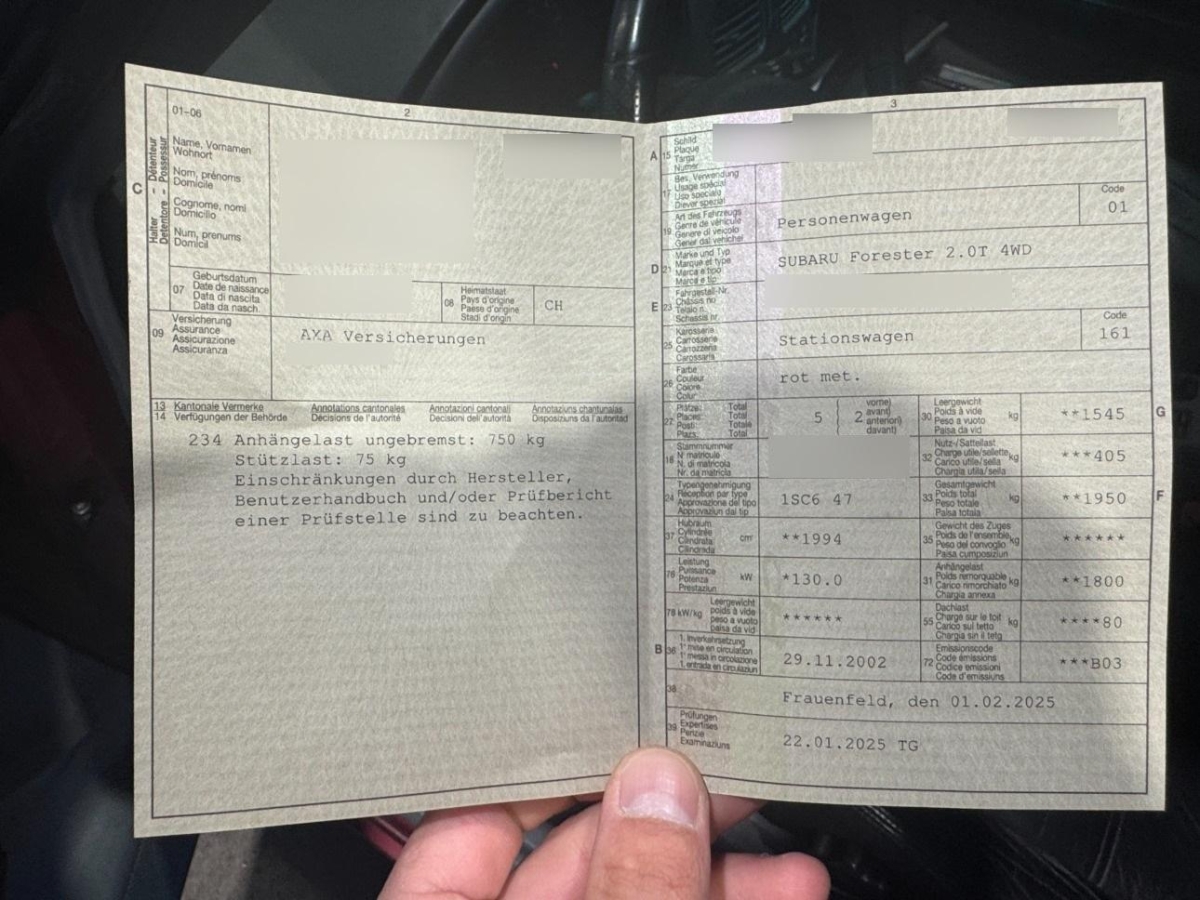 2
01-06
C
Halter - Détenteur
Detentore - Possessur
Name, Vornamen
Wohnort
Nom, prénoms
Domicile
Cognome, nomi
Domicilio
Num, prenums
Domicil
07
Geburtsdatum
Date de naissance
Data di nascita
Data da nasch.
08
Heimatstaat
Pays d'origine
Paese d'origine
Stadi d'origin
CH
09
Versicherung
Assurance
Assicurazione
Assicuranza
AXA Versicherungen
13 Kantonale Vermerke Annotations cantonales Annotazioni cantonali Annotaziuns chantunalas
14 Verfügungen der Behörde Décisions de l'autorité Decisioni dell'autorità Disposiziuns da l'autoritad
234 Anhängelast ungebremst: 750 kg
Stützlast: 75 kg
Einschränkungen durch Hersteller,
Benutzerhandbuch und/oder Prüfbericht
einer Prüfstelle sind zu beachten.
3
A 15
Schild
Plaque
Targa
Numer
17
Bes. Verwendung
Usage spécial
Uso speciale
Diever spezial
19
Art des Fahrzeugs
Genre de véhicule
Genere di veicolo
Gener dal vehichel
Personenwagen
Code
01
D 21
Marke und Typ
Marque et type
Marca e tipo
Marca e tip
SUBARU Forester 2.0T 4WD
E 23
Fahrgestell-Nr.
Châssis no
Telaio n.
Schassis nr.
25
Karosserie
Carrosserie
Carrozzeria
Carossaria
Stationswagen
Code
161
26
Farbe
Couleur
Colore
Colur
rot met.
27
Plätze: Total
Places: Total
Posti: Totale
Plazs: Total
5
2
vorne)
avant)
anteriori)
davant)
30
Leergewicht
Poids à vide
Peso a vuoto
Paisa da vid
kg
**1545
G
18
Stammnummer
N° matricule
N. di matricola
Nr. da matricla
32
Nutz-/Sattellast
Charge utile/sellette
Carico utile/sella
Chargia utila/sella
kg
***405
24
Typengenehmigung
Réception par type
Approvazione del tipo
Approvaziun dal tip
1SC6 47
33
Gesamtgewicht
Poids total
Peso totale
Paisa totala
kg
**1950
F
37
Hubraum
Cylindrée
Cilindrata
Cilindrada
cm³
**1994
35
Gewicht des Zuges
Poids de l'ensemble
Peso del convoglio
Paisa cumposiziun
kg
******
76
Leistung
Puissance
Potenza
Prestaziun
kW
*130.0
31
Anhängelast
Poids remorquable
Carico rimorchiato
Chargia annexa
kg
**1800
78 kW/kg
Leergewicht
poids à vide
peso a vuoto
paisa da vid
******
55
Dachlast
Charge sur le toit
Carico sul tetto
Chargia sin il tetg
kg
****80
B 36
1. Inverkehrsetzung
1re mise en circulation
1a messa in circolazione
1. entrada en circulaziun
29.11.2002
72
Emissionscode
Code émissions
Codice emissioni
Code d'emissiuns
***B03
38
Frauenfeld, den 01.02.2025
39
Prüfungen
Expertises
Perizie
Examinaziuns
22.01.2025 TG